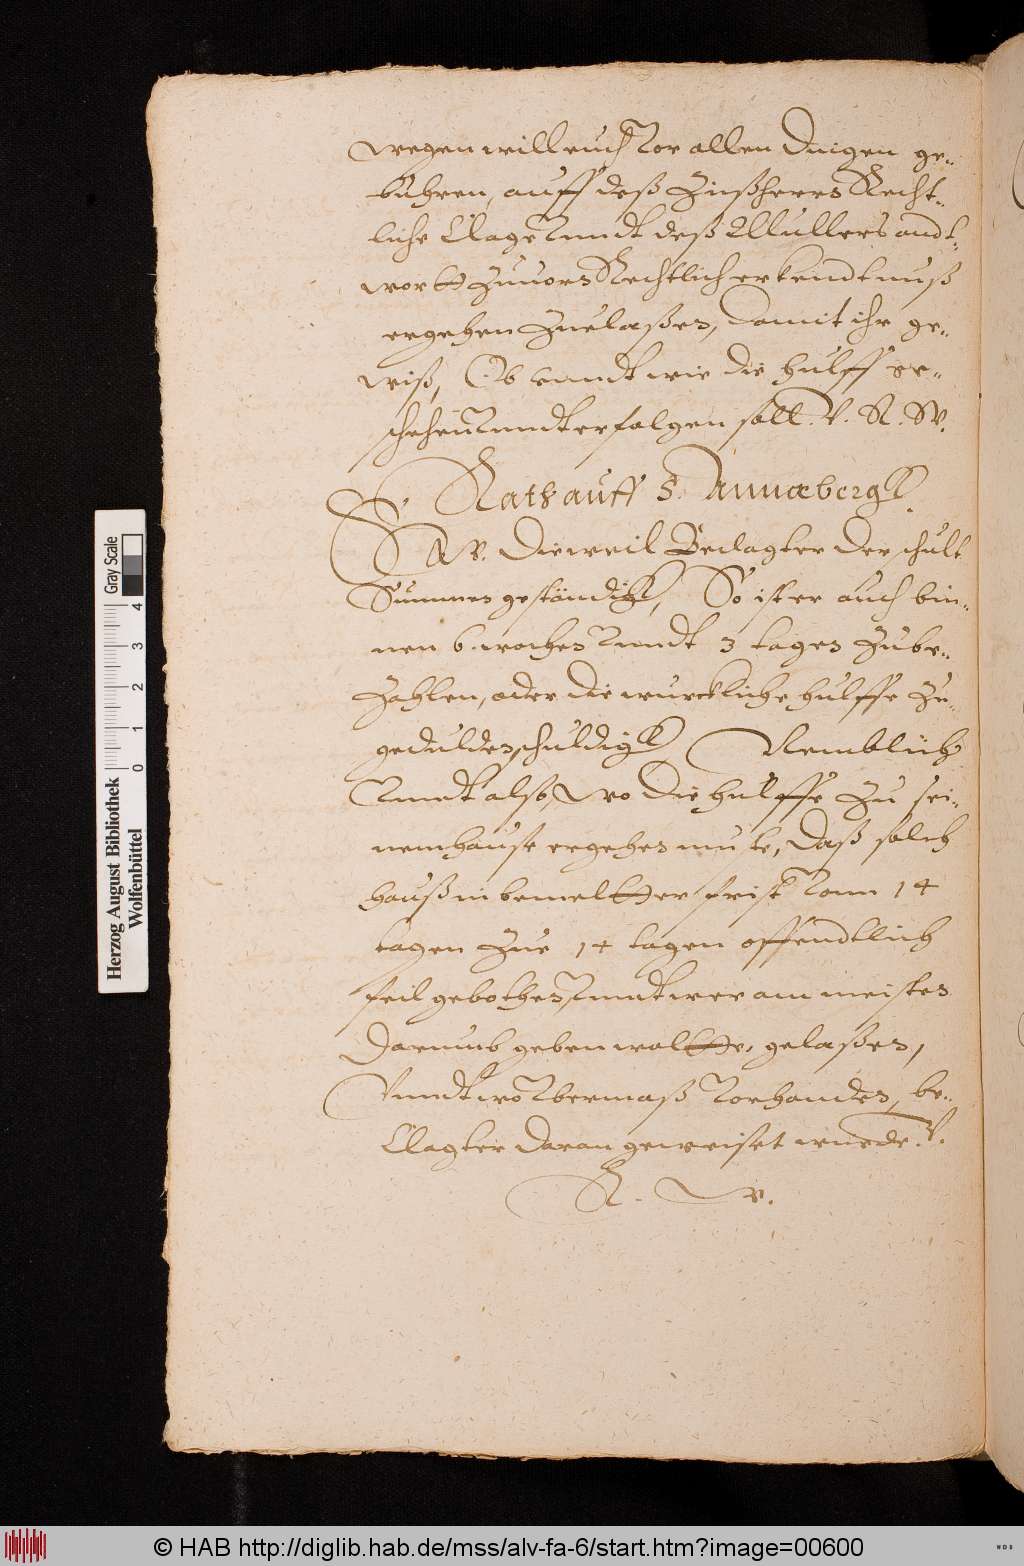 wegen will euch vor allen Dingen ge-
bühren, auff deß Zinßherrs Recht-
liche Clage vnndt deß Müllers andt-
wortt Zuuors Rechtlich erkendtnuß
ergehen Zuelaßen, damit ihr ge-
wiß, Ob vnndt wie die hülff ge-
schehen vnndt erfolgen soll. V. R. W.
Rath auff S. Annæbergk.
V. R. W. Dieweil Beclagter der schult
Summen geständigk, So ist er auch bin-
nen 6. wochen vnndt 3 tagen Zube-
Zahlen, oder die würckliche hülffe Zu-
gedulden schuldigk Nemblich
Vnndt also, wo die hülffe Zu sei-
nem hause ergehen muste, daß solch
hauß in bemeltter frist vonn 14
tagen Zue 14 tagen offendtlich
feil gebothen, vnndt wer am meisten
Darumb geben woltte, gelaßen,
Vnndt wo vbermaß vorhanden, be-
Clagter daran geweiset wurde. V.
R. W.
Herzog August Bibliothek
Wolfenbüttel
Gray Scale
0 1 2 3 4
© HAB http://diglib.hab.de/mss/alv-fa-6/start.htm?image=00600
WDB